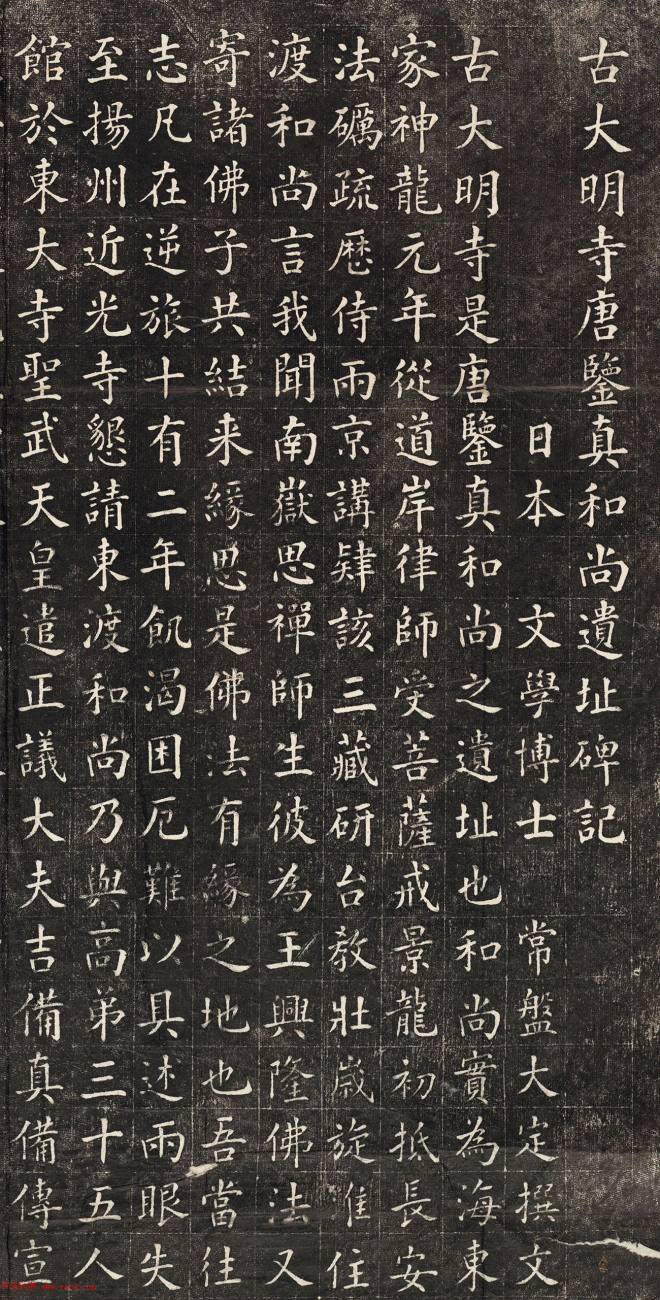 古大明寺唐鑒真和尚遺址碑記
日本 文學博士 常盤大定撰文
古大明寺是唐鑒真和尚之遺址也和尚實為海東
家神龍元年從道岸律師受菩薩戒景龍初抵長安
法礪疏歷侍兩京講肄該三藏研台教壯歲旋淮住
渡和尚言我聞南嶽思禪師生彼為王興隆佛法又
寄諸佛子共結来緣思是佛法有緣之地也吾當往
志凡在逆旅十有二年飢渴困厄難以具述兩眼失
至揚州近光寺懇請東渡和尚乃與高弟三十五人
館於東大寺聖武天皇遣正議大夫吉備真備傳宣